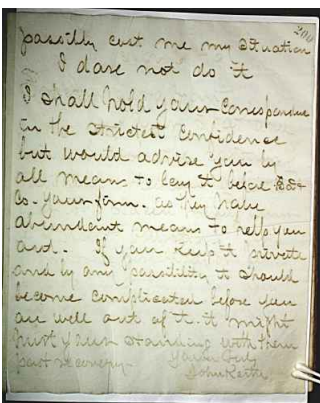 200
possibly cost me my Situation
I dare not do it
I shall hold your Correspondence
in the strictest Confidence
but would advise you by
all means to lay it before
Co. your firm. as they have
abundant means to help you
out. If you keep it private
and by any possibility it should
become complicated before you
are well out of it. it might
hurt your standing with them
past recovery. Yours Truly
John Keith